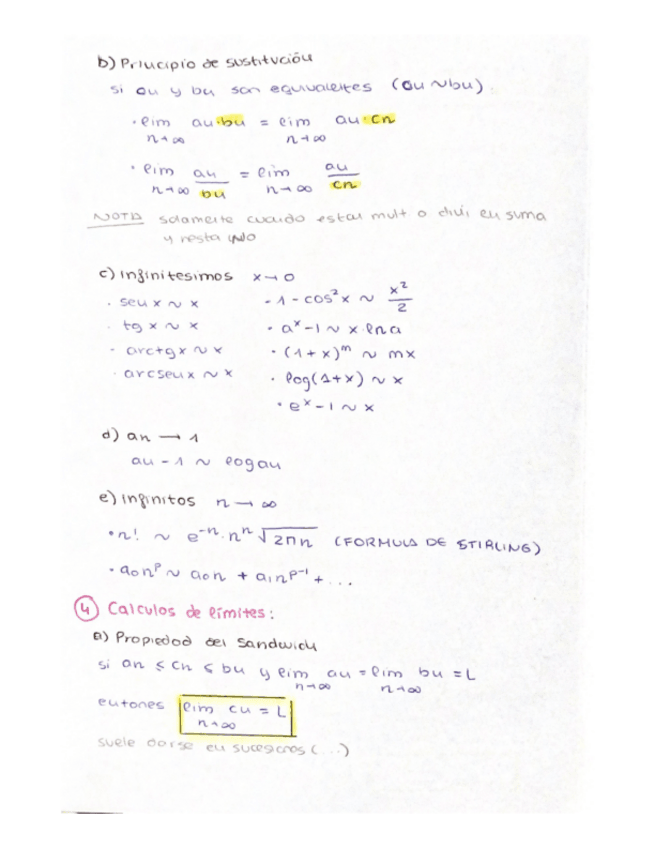 b) Principio de sustitución
si an y bn son equivalentes (an ~ bn)
• lim n→∞ an·bn = lim n→∞ an·cn
• lim n→∞ an/bn = lim n→∞ an/cn
NOTA solamente cuando estan mult o divi, en suma
y resta no
c) Infinitesimos x→0
· sen x ~ x
• 1 - cos²x ~ x²/2
· tg x ~ x
• aˣ - 1 ~ x·ln a
· arctg x ~ x
• (1+x)ᵐ ~ mx
· arcsen x ~ x
• log(1+x) ~ x
• eˣ - 1 ~ x
d) an → 1
an - 1 ~ log an
e) Infinitos n → ∞
• n! ~ e⁻ⁿ·nⁿ√2πn (FORMULA DE STIRLING)
• a₀nᵖ ~ a₀n + a₁nᵖ⁻¹ + ...
4 Calculos de límites:
a) Propiedad del Sandwich
si an ≤ cn ≤ bn y lim n→∞ an = lim n→∞ bn = L
entones lim n→∞ cn = L
suele darse en (...)